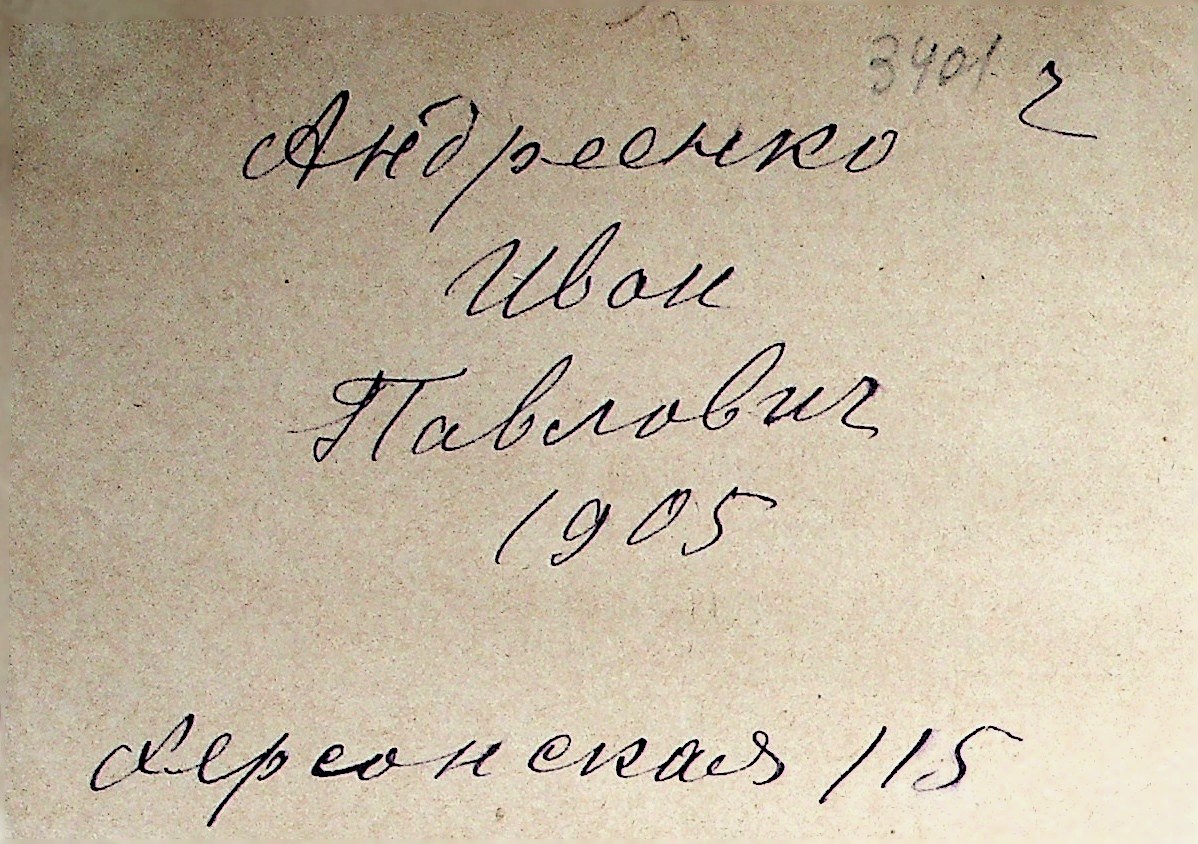 3401 ч
Андреенко
Иван
Павлович
1905
Херсонская 115